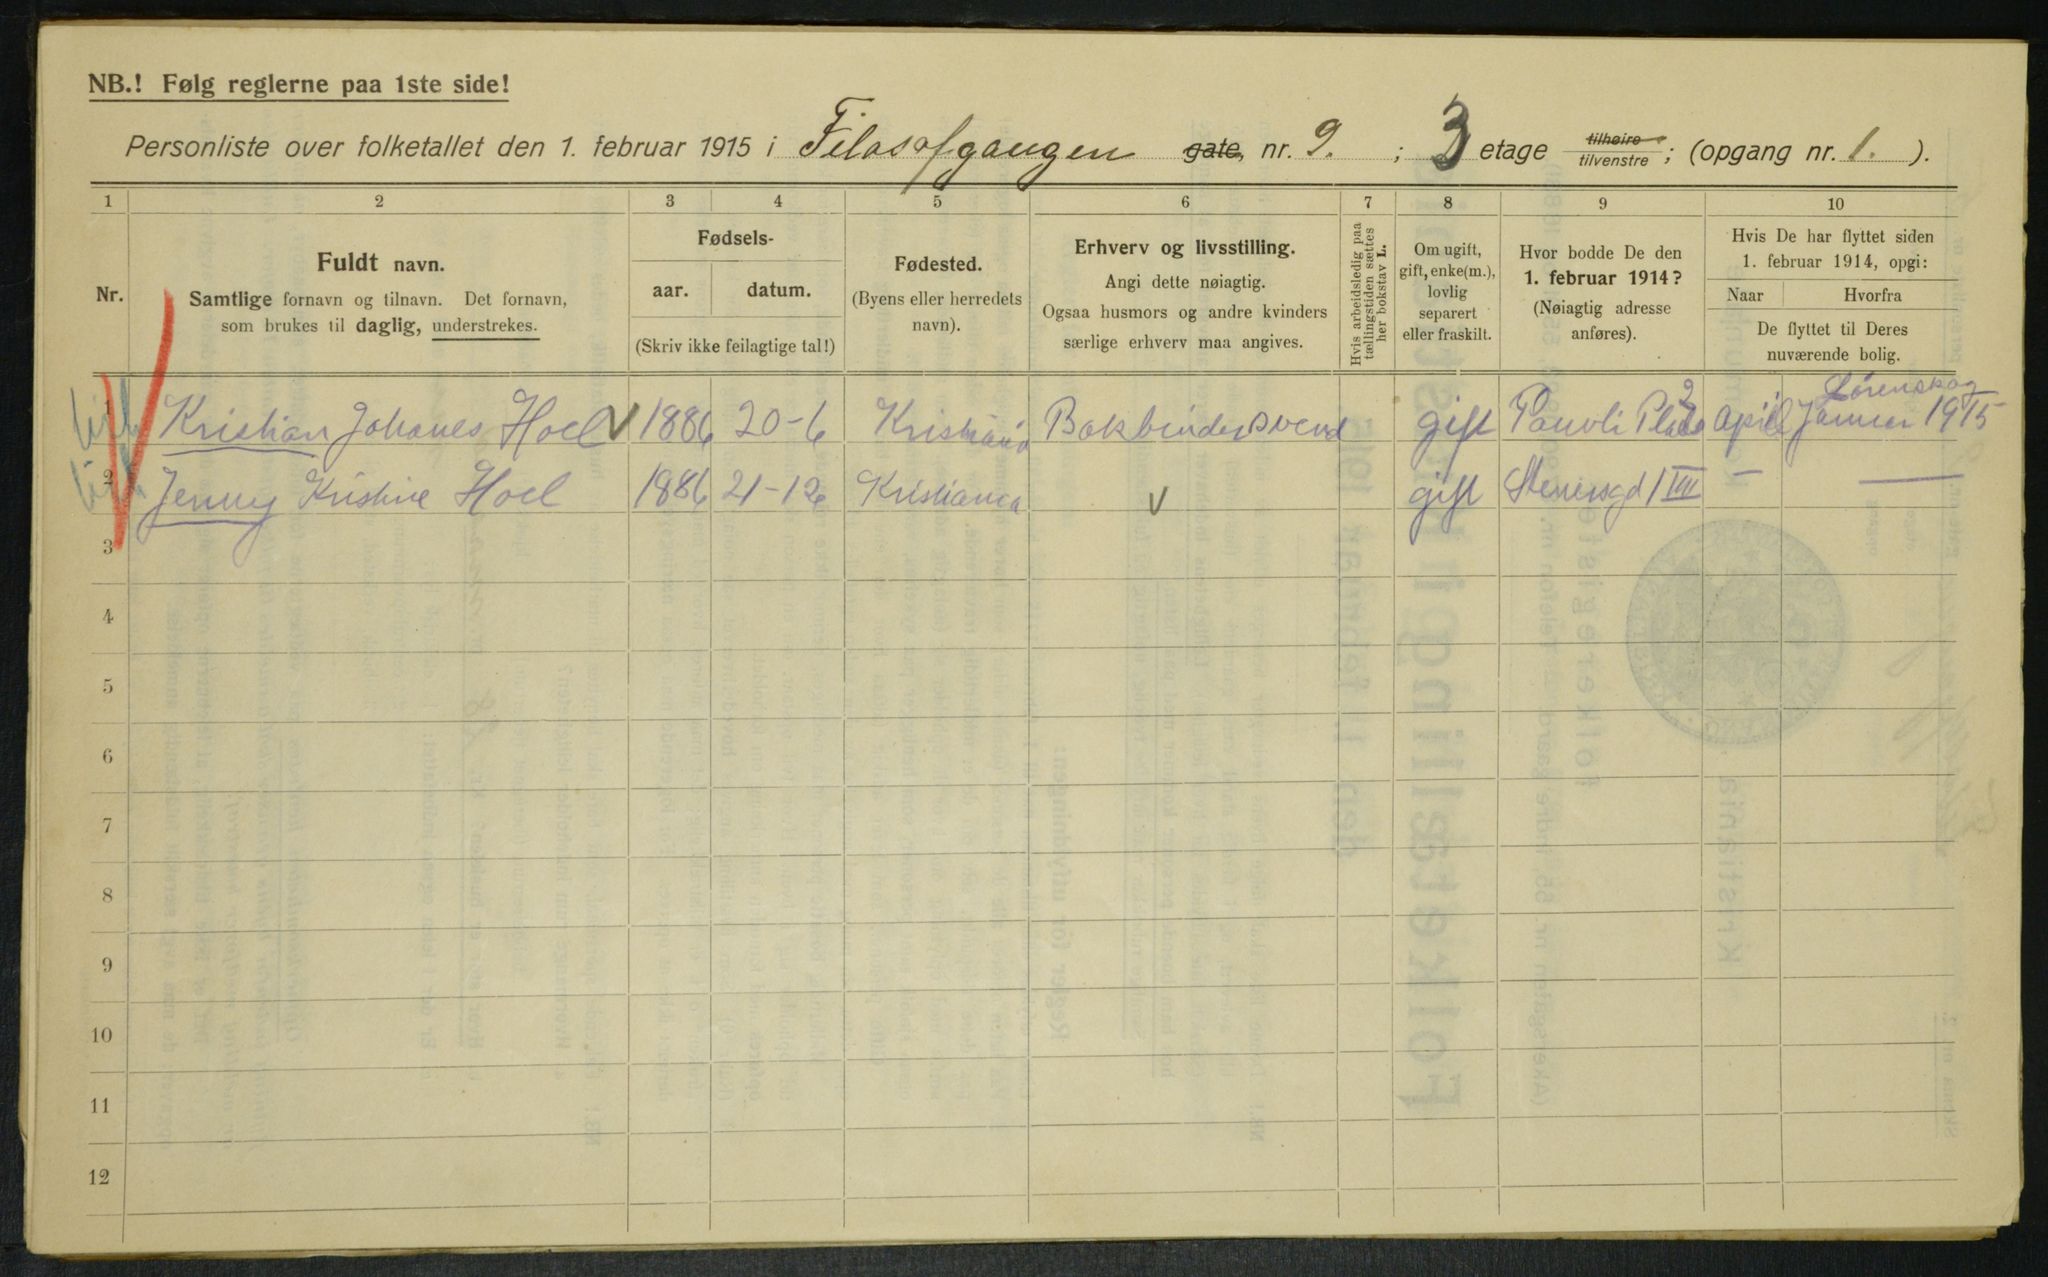 NB.! Følg reglerne paa 1ste side!
Personliste over folketallet den 1. februar 1915 i Filosofgangen gate, nr. 9. ; 3 etage tilhøire tilvenstre ; (opgang nr. 1. ).
1 2 3 4 5 6 7 8 9 10
Nr.
Fuldt navn.
Samtlige fornavn og tilnavn. Det fornavn,
som brukes til daglig, understrekes.
Fødsels-
aar. datum.
(Skriv ikke feilagtige tal!)
Fødested.
(Byens eller herredets
navn).
Erhverv og livsstilling.
Angi dette nøiagtig.
Ogsaa husmors og andre kvinders
særlige erhverv maa angives.
Hvis arbeidsledig paa
tællingstiden sættes
her bokstav L.
Om ugift,
gift, enke(m.),
lovlig
separert
eller fraskilt.
Hvor bodde De den
1. februar 1914?
(Nøiagtig adresse
anføres).
Hvis De har flyttet siden
1. februar 1914, opgi:
Naar Hvorfra
De flyttet til Deres
nuværende bolig.
Lørenskog
1 Kristian Johanes Hoel 1886 20-6 Kristiania Bokbindersvend gift April Januar 1915
2 Jenny Kristine Hoel 1886 21-12 Kristiania gift Stenersgd 1 VII — —
3
4
5
6
7
8
9
10
11
12